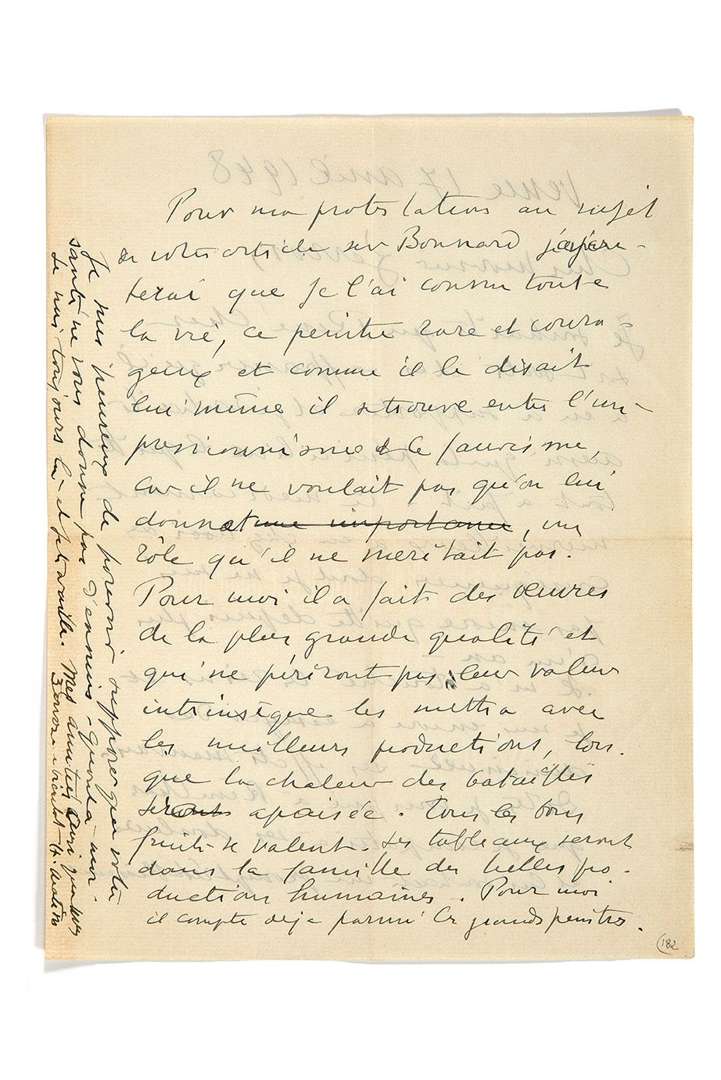 Pour ma protestation au sujet
de votre article sur Bonnard j'ajou-
terai que je l'ai connu toute
la vie, ce peintre rare et coura
geux et comme il le disait
lui même il se trouve entre l'im-
pressionnisme et le fauvisme,
car il ne voulait pas qu'on lui
donnât une importance, un
rôle qu'il ne méritait pas.
Pour moi il a fait des œuvres
de la plus grande qualité et
qui ne périront pas, leur valeur
intrinsèque les mettra avec
les meilleurs productions, lors-
que la chaleur des batailles
sera apaisée. Tous les bons
fruits se valent. Ses tableaux seront
dans la famille des belles pro-
ductions humaines. Pour moi
il compte déjà parmi les grands peintres.
Je suis heureux de pouvoir supposer que votre
santé ne vous donne pas d'ennuis - quant à moi -
Je suis toujours là - et je travaille. Mes amitiés ainsi que
H. Matisse
182
Vence 17 avril 1948